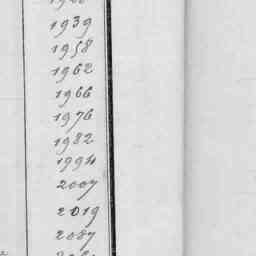 1939
1958
1962
1966
1976
1982
1994
2007
2019
2087